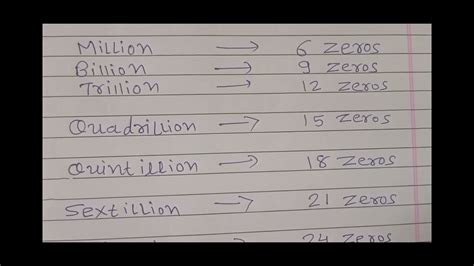 Million → 6 zeros
Billion → 9 zeros
Trillion → 12 zeros
Quadrillion → 15 zeros
Quintillion → 18 zeros
Sextillion → 21 zeros
24 zeros